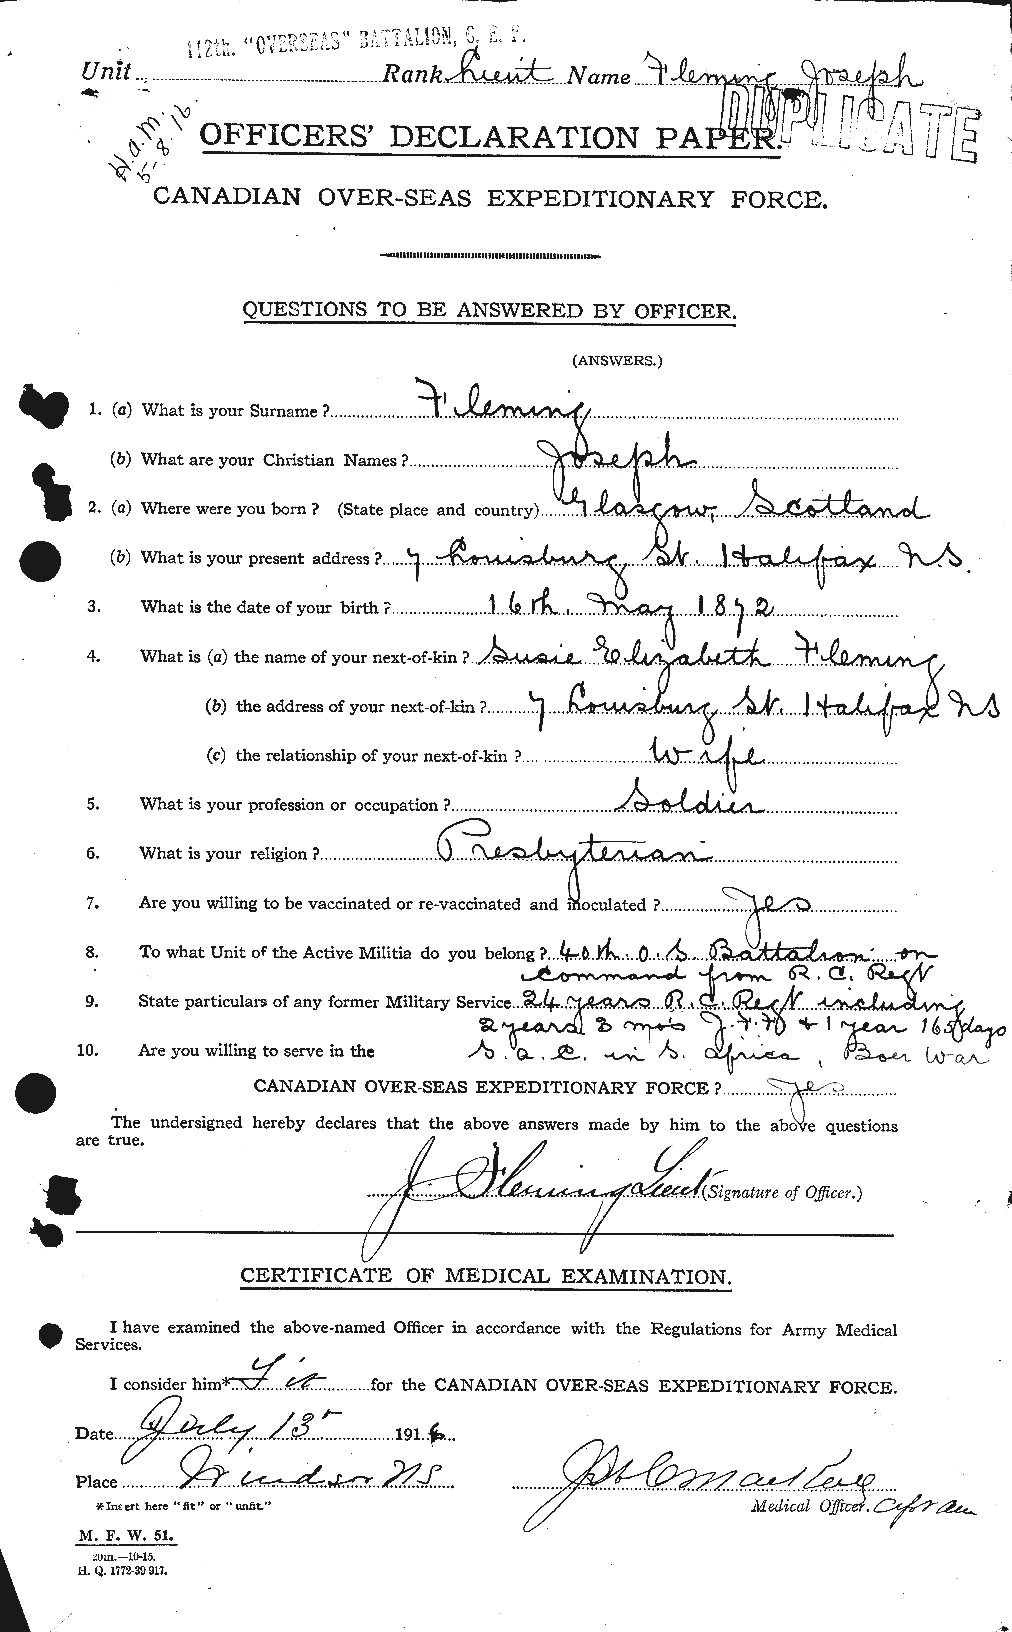 112th. "OVERSEAS" BATTALION, C. E. F.
Unit Rank Lieut Name Fleming Joseph
DUPLICATE
H.a.M. 5-8-16
OFFICERS' DECLARATION PAPER.
CANADIAN OVER-SEAS EXPEDITIONARY FORCE.
QUESTIONS TO BE ANSWERED BY OFFICER.
(ANSWERS.)
1. (a) What is your Surname? Fleming
(b) What are your Christian Names? Joseph
2. (a) Where were you born? (State place and country) Glasgow, Scotland
(b) What is your present address? 7 Louisburg St. Halifax N.S.
3. What is the date of your birth? 16th. May 1872
4. What is (a) the name of your next-of-kin? Susie Elizabeth Fleming
(b) the address of your next-of-kin? 7 Louisburg St. Halifax NS
(c) the relationship of your next-of-kin? Wife
5. What is your profession or occupation? Soldier
6. What is your religion? Presbyterian
7. Are you willing to be vaccinated or re-vaccinated and inoculated? Yes
8. To what Unit of the Active Militia do you belong? 40th O.S. Battalion on
command from R.C. Regt
9. State particulars of any former Military Service 24 years R.C. Regt including
2 years 3 mo's Y.F.F. & 1 year 165 days
10. Are you willing to serve in the S.a.C. in S. Africa, Boer War
CANADIAN OVER-SEAS EXPEDITIONARY FORCE? Yes
The undersigned hereby declares that the above answers made by him to the above questions
are true.
J. Fleming Lieut (Signature of Officer.)
CERTIFICATE OF MEDICAL EXAMINATION.
I have examined the above-named Officer in accordance with the Regulations for Army Medical
Services.
I consider him* Fit for the CANADIAN OVER-SEAS EXPEDITIONARY FORCE.
Date July 13th 1916
Place Windsor NS
*Insert here "fit" or "unfit."
Medical Officer.
M. F. W. 51.
20m.—10-15.
H. Q. 1772-39 917.